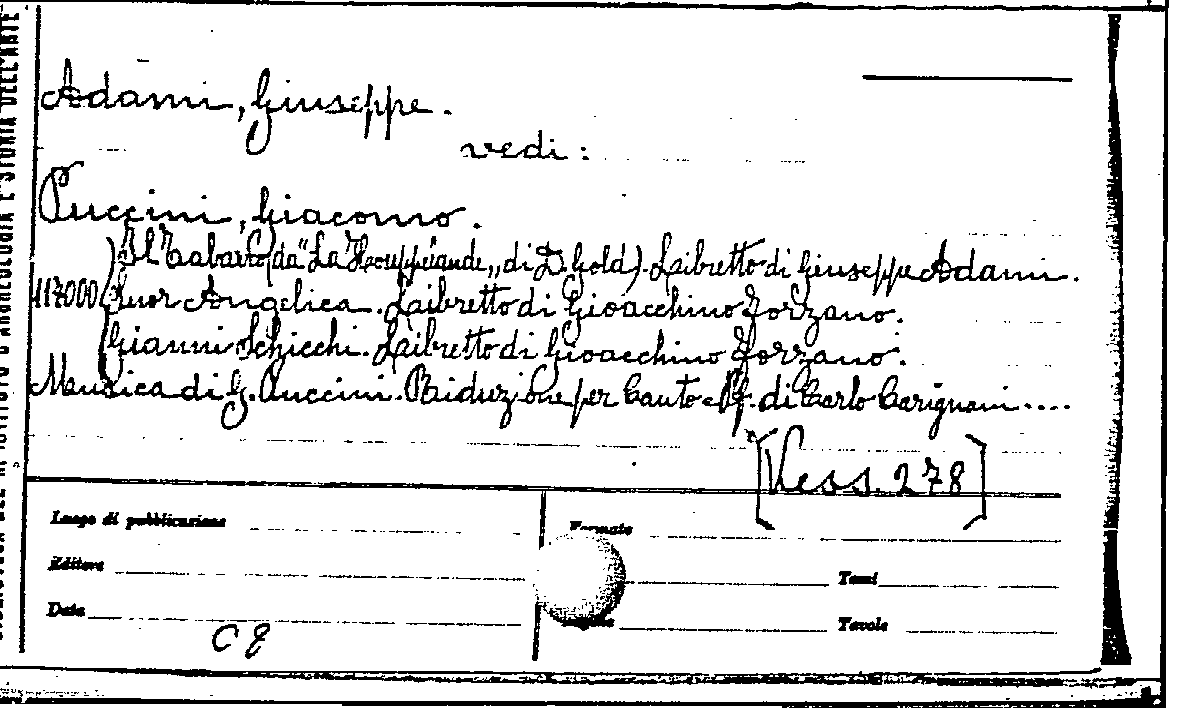 Adami, Giuseppe.
vedi:
Puccini, Giacomo.
Il Tabarro (da "La Houppelande" di D. Gold). Libretto di Giuseppe Adami.
117000 Suor Angelica. Libretto di Gioacchino Forzano.
Gianni Schicchi. Libretto di Gioacchino Forzano.
Musica di G. Puccini. Riduzione per Canto e Pf. di Carlo Carignani....
[Vess. 278]
Luogo di pubblicazione
Formato
Editore
Tomi
Data
Pagine
Tavole